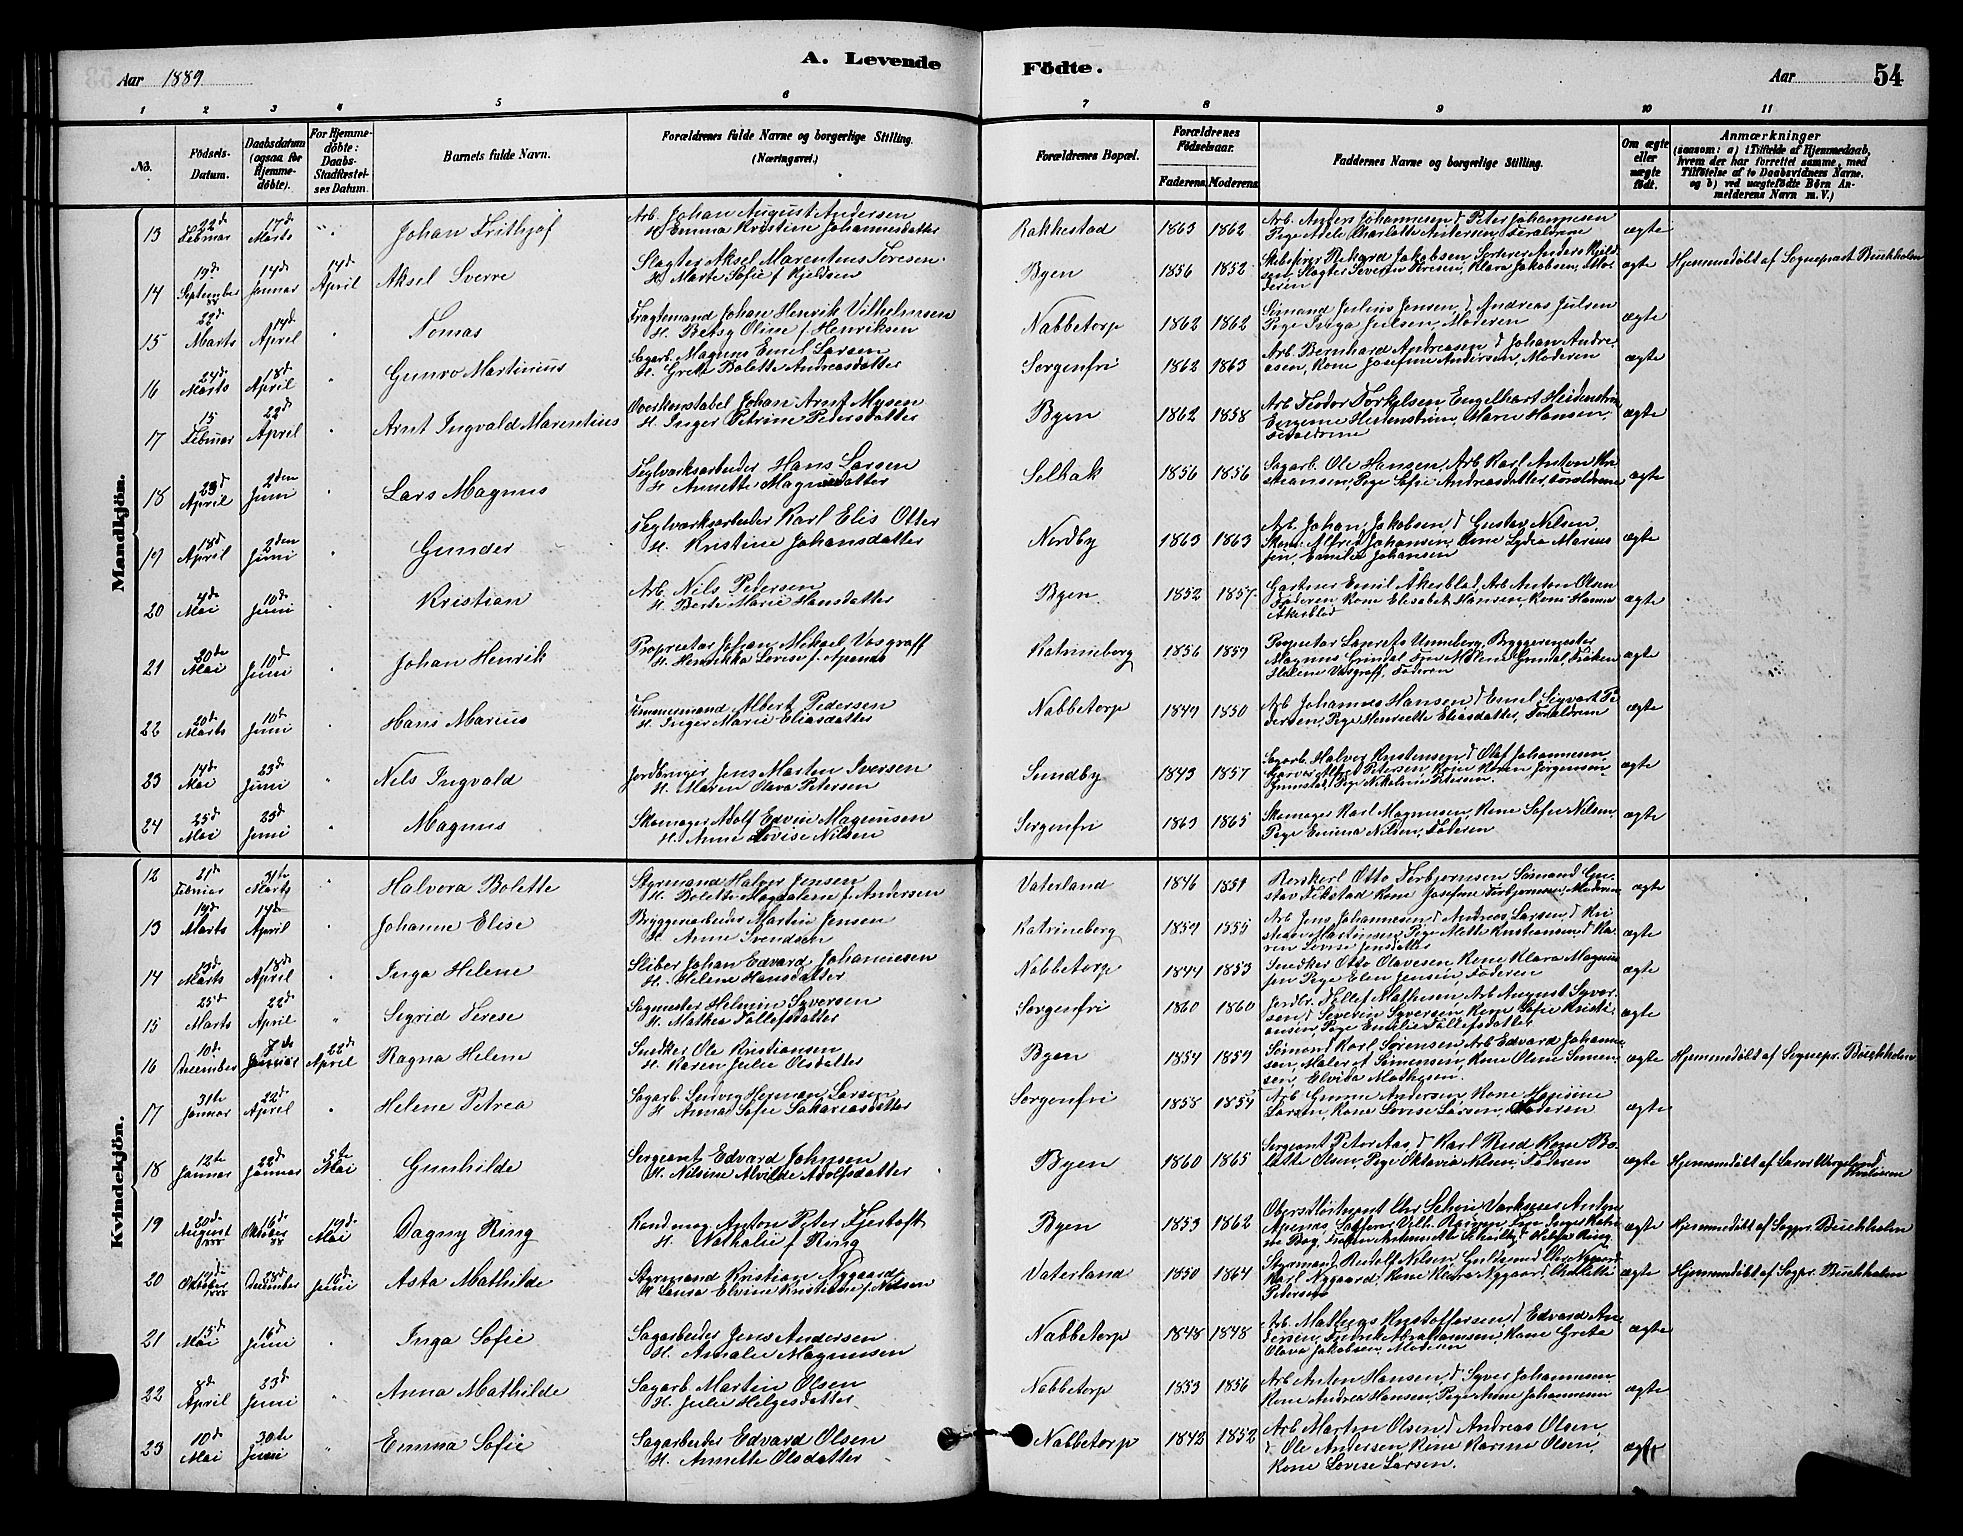 Aar 1889
A. Levende
Födte.
Aar
54
1 2 3 4 5 6 7 8 9 10 11
No.
Födsels-
Datum.
Daabsdatum
(ogsaa for
Hjemme-
döbte).
For Hjemme-
döbte:
Daabs-
Stadfæstel-
ses Datum.
Barnets fulde Navn.
Forældrenes fulde Navne og borgerlige Stilling.
(Næringsvei.)
Forældrenes Bopæl.
Forældrenes
Födselsaar.
Faderens Moderens
Faddernes Navne og borgerlige Stilling.
Om ægte
eller
uægte
födt.
Anmærkninger
(saasom: a) i Tilfælde af Hjemmedaab,
hvem der har forrettet samme, med
Tilföielse af to Daabsvidners Navne.
og b) ved uægtefödte Börn An-
melderens Navn m. V.)
Mandkjön.
13 22d Februar 17d Marts Johan Frithjof
Arb. Johan August Andersen
H. Emma Kristine Johannesdatter
Rakkestad 1863 1862
Arb. Anders Johannesen, Peter Johannesen
Pige Adele Charlotte Andersen, Forældrene
ægte
14 19d September 14d Januar 14d April Aksel Sverre
Slagter Aksel Marentius Toresen
H. Marte Sofie f. Kjeldsen
Byen 1856 1852
Skibsfører Rikard Jakobsen, Anders Kjeld-
sen, Slagter Severin Toresen, Klara Jakobsen, Mo-
deren
ægte Hjemmedøbt af Sognepræst Buckholm
15 22d Marts 14d April Tomas
Fragtemand Johan Henrik Vilhelmsen
H. Betsy Oline f. Henriksen
Nabbetorp 1862 1862
Sømand Julius Jensen, Andreas Julsen
Pige Inga Julsen, Moderen
ægte
16 24d Marts 18d April Gunro Martinius
Sagarb. Magnus Emil Larsen
H. Grete Bolette Andreasdatter
Sorgenfri 1862 1863
Arb. Bernhard Andreasen, Johan Andre-
asen, Kone Josefine Andersen, Moderen
ægte
17 15 Februar 22d April Arnt Ingvald Marentius
Overkonstabel Johan Arnt Mysen
H. Inger Petrine Pedersdatter
Byen 1862 1858
Arb. Teodor Torkelsen, Engelhart Heidenstrøm
Eugenie Heidenstrøm, Marie Hansen,
Forældrene
ægte
18 23d April 2den Juni Lars Magnus
Teglværksarbeider Hans Larsen
H. Annette Magnusdatter
Selbak 1856 1856
Sagarb. Ole Hansen, Arb. Karl Anton Kri-
stiansen, Pige Sofie Andreasdatter, Forældrene
ægte
19 18d April 2den Juni Gunder
Teglværksarbeider Karl Elis Otter
H. Kristine Johansdatter
Nordby 1863 1863
Arb. Johan Jakobsen, Gustav Nilsen,
Skom. Alfred Johansen, Kone Lydia Marius-
sen, Emilie Johansen
ægte
20 4d Mai 10d Juni Kristian
Arb. Nils Pedersen
H. Berte Marie Hansdatter
Byen 1852 1857
Gartner Emil Åkerblad, Arb. Anton Olsen
Faderen, Kone Elisabet Hansen, Kone Hanna
Åkerblad
ægte
21 20de Mai 10d Juni Johan Henrik
Proprietær Johan Mikael Vosgraff
H. Henrikka Lovise f. Apenæs
Katrineborg 1856 1859
Proprietær Laurets Unneberg, Bryggerimester
Magnus Grindal, Fru Malene Grindal, Frøken
Helene Vosgraff, Faderen
ægte
22 20d Marts 10d Juni Hans Marius
Tømmermand Albert Pedersen
H. Inger Marie Eliasdatter
Nabbetorp 1849 1850
Arb. Johannes Hansen, Emil Sigvart Pe-
dersen, Pige Henriette Eliasdatter, Forældrene
ægte
23 14d Mai 23d Juni Nils Ingvald
Jordbruger Jens Martin Iversen
H. Maren Olava Petersen
Sundby 1843 1857
Sagarb. Halvor Kristensen, Olaf Johannesen
Garver Alfred Petersen, Kone Karen Jørgensen
Grimstad, Pige Nikoline Petersen
ægte
24 25d Mai 23d Juni Magnus
Skomager Adolf Edvin Magnussen
H. Anne Lovise Nilsen
Sorgenfri 1863 1865
Skomager Karl Magnusen, Kone Sofie Nilsen,
Pige Emma Nilsen, Faderen
ægte
Kvindekjön.
12 21d Februar 31te Marts Halvora Bolette
Styrmand Halvor Jensen
H. Bolette Magdalene f. Andersen
Vaterland 1846 1851
Rorskarl Otto Torbjørnsen, Sømand Gu-
stav Fikstad, Kone Josefine Torbjørnsen, Moderen
ægte
13 19d Marts 14d April Johanne Elise
Bryggeriarbeider Martin Jensen
H. Anne Svendsen
Katrineberg 1859 1855
Arb. Jens Johannesen, Andreas Larsen, Kri-
stian Martinsen, Pige Mette Kristiansen, Ka-
ren Lovise Jensdatter
ægte
14 13d Marts 18d April Inga Helene
Sliber Johan Edvard Johannesen
H. Helene Hansdatter
Nabbetorp 1844 1853
Snedker Otto Olavesen, Kone Klara Magnus-
sen, Pige Elen Jensen, Faderen
ægte
15 25d Marts 22d April Sigrid Terese
Sagmester Helmin Syversen
H. Mathea Tollefsdatter
Sorgenfri 1860 1860
Jordbr. Tollef Mathisen, Arb. August Syver-
sen, Severin Syversen, Kone Sofie Kristi-
ansen, Pige Emilie Tollefsdatter
ægte
16 10d December 7de Januar 22d April Ragna Helene
Snedker Ole Kristiansen
H. Karen Julie Olsdatter
Byen 1854 1859
Sømand Karl Sørensen, Arb. Edvard Johanne-
sen, Maler Simensen, Kone Oline Simen-
sen, Elvida Mathisen.
ægte Hjemmedøbt af Sognepr. Buckholm
17 31te Januar 22d April Helene Petrea
Sagarb. Ludvig Herman Larsen
H. Anna Sofie Sakariasdatter
Sorgenfri 1858 1855
Arb. Gunne Andersen, Kone
Larsen, Kone Lovise Larsen, Moderen
ægte
18 12te Januar 22d Januar 5te Mai Gunhilde
Sergeant Edvard Johnsen
H. Nilsine Alvilde Adolfsdatter
Byen 1860 1865
Sergeant Peter Aas, Karl Rud, Kone Bo-
lette Olsen, Pige Oktavia Nilsen, Faderen
ægte Hjemmedøbt af Lars Wergeland
19 20d August 16d Oktober 19d Mai Dagny Ring
Kand. mag. Anton Peter Fjertoft
H. Nathalie f. Ring
Byen 1853 1862
ægte Hjemmedøbt af Sogpr. Buckholm
20 Oktober 28d December 10d Juni Asta Mathilde
Styrmand Kristian Nygaard
H. Laura Elvine Kristiane f. Nilsen
Vaterland 1850 1864
Styrmand Rudolf Nilsen,
Karl Nygaard, Kone Klara Nygaard, Charlotte
Petersen
ægte Hjemmedøbt af Sogpr. Buckholm
21 15d Mai 16d Juni Inga Sofie
Sagarbeider Jens Andersen
H. Amalie Magnusen
Nabbetorp 1848 1848
Arb. Mathias Kristoffersen, Edvard An-
dersen, Fredrik Abrahamsen, Kone Grete
Olava Jakobsen, Moderen
ægte
22 8d April 23d Juni Anna Mathilde
Sagarb. Martin Olsen
H. Julie Helgesdatter
Nabbetorp 1853 1856
Arb. Anton Hansen, Syver Johannesen
Kone Andrea Hansen, Pige Anne Johannesen
ægte
23 10d Mai 30te Juni Emma Sofie
Sagarbeider Edvard Olsen
H. Annette Olsdatter
Nabbetorp 1842 1852
Arb. Martin Olsen, Andreas Olsen,
Ole Andersen, Kone Karine Olsen,
Kone Lovise Larsen.
ægte